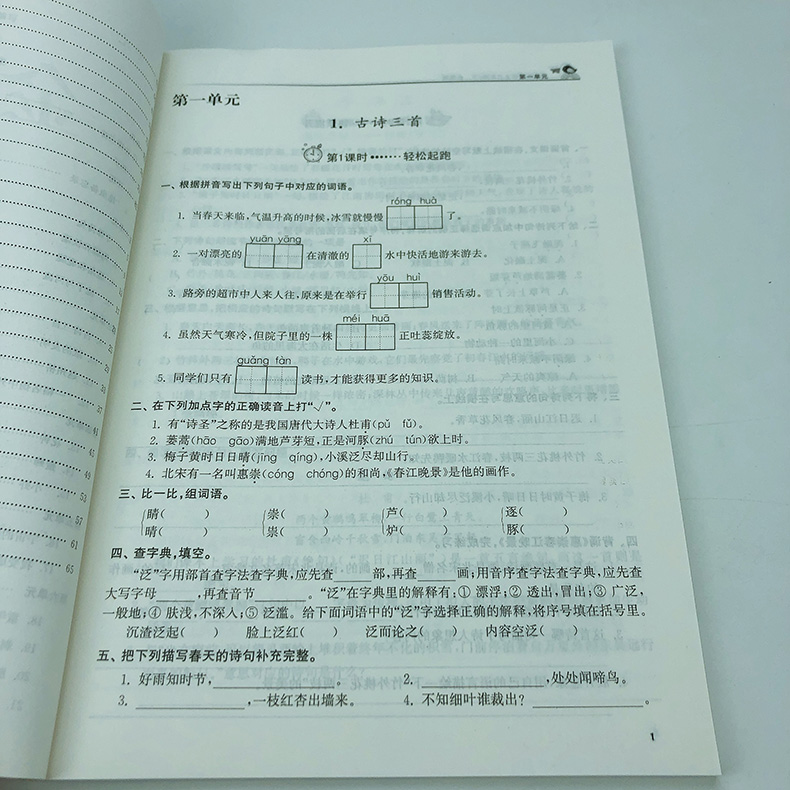 第一单元
第一单元
1. 古诗三首
第1课时……轻松起跑
一、根据拼音写出下列句子中对应的词语。
róng huà
1. 当春天来临,气温升高的时候,冰雪就慢慢 了。
yuān yāng xī
2. 一对漂亮的 在清澈的 水中快活地游来游去。
yōu huì
3. 路旁的超市中人来人往,原来是在举行 销售活动。
méi huā
4. 虽然天气寒冷,但院子里的一株 正吐蕊绽放。
guǎng fàn
5. 同学们只有 读书,才能获得更多的知识。
二、在下列加点字的正确读音上打“√”。
1. 有“诗圣”之称的是我国唐代大诗人杜甫(pǔ fǔ)。
2. 蒌蒿(hāo gāo)满地芦芽短,正是河豚(zhú tún)欲上时。
3. 梅子黄时日日晴(jīng qíng),小溪泛尽却山行。
4. 北宋有一名叫惠崇(cóng chóng)的和尚,《春江晚景》是他的画作。
三、比一比,组词语。
睛( ) 崇( ) 芦( ) 逐( )
晴( ) 祟( ) 炉( ) 豚( )
四、查字典,填空。
“泛”字用部首查字法查字典,应先查____部,再查____画;用音序查字法查字典,应先查
大写字母____,再查音节____。“泛”在字典里的解释有:① 漂浮;② 透出,冒出;③ 广泛,
一般地;④ 肤浅,不深人;⑤ 泛滥。给下面词语中的“泛”字选择正确的解释,将序号填在括号里。
沉渣泛起( ) 脸上泛红( ) 泛而论之( ) 内容空泛( )
五、把下列描写春天的诗句补充完整。
1. 好雨知时节,____________。 2. ____________,处处闻啼鸟。
3. ____________,一枝红杏出墙来。 4. 不知细叶谁裁出?____________。
1
37
41
45
49
53
57
61
65